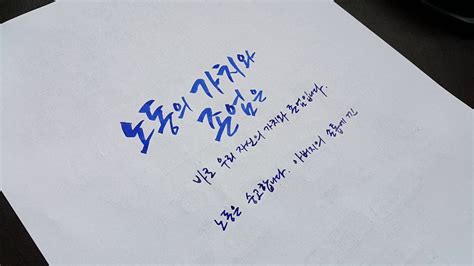 노동의 가치와
존엄은
바로 우리 자신의 가치와 존엄입니다.
노동은 숭고합니다. 아버지의 손톱에 낀